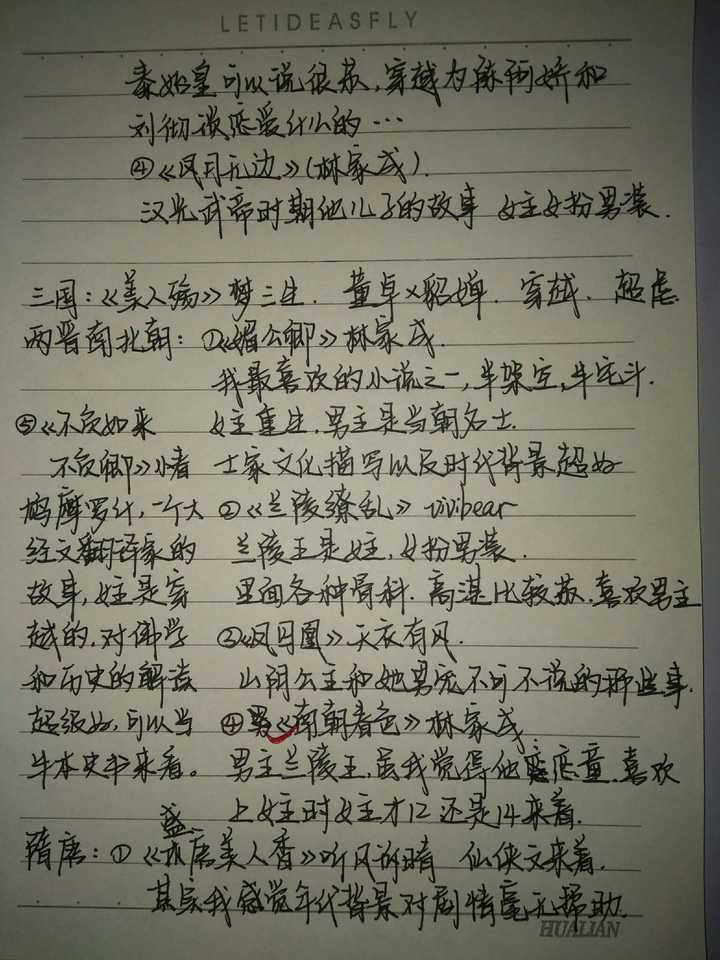 LETIDEASFLY
秦始皇可以说很苏,穿越为陈阿娇和
刘彻谈恋爱什么的…
④《风月无边》(林家成).
汉光武帝时期他儿子的故事 女主女扮男装.
三国:《美人殇》梦三生. 董卓×貂婵. 穿越. 超虐
两晋南北朝:①《媚公卿》林家成.
我最喜欢的小说之一,半架空,半宅斗.
女主重生.男主是当朝名士.
士家文化描写以及时代背景超好
②《兰陵缭乱》vivibear
兰陵王是女主,女扮男装.
里面各种骨科.高湛比较苏.喜欢男主
③《凤囚凰》天衣有风.
山阴公主和她男宠不可不说的那些事.
④《南朝春色》林家成.
男主兰陵王.虽我觉得他恋童.喜欢
上女主时女主才12还是14来着.
⑤《不负如来
不负卿》小春
鸠摩罗什,一个大
经文翻译家的
故事,女主是穿
越的.对佛学
和历史的解读
超级好,可以当
半本史书来看。
隋唐:①《盛唐美人香》听风诉晴 仙侠文来着.
其实我感觉年代背景对剧情毫无帮助.
HUALIAN